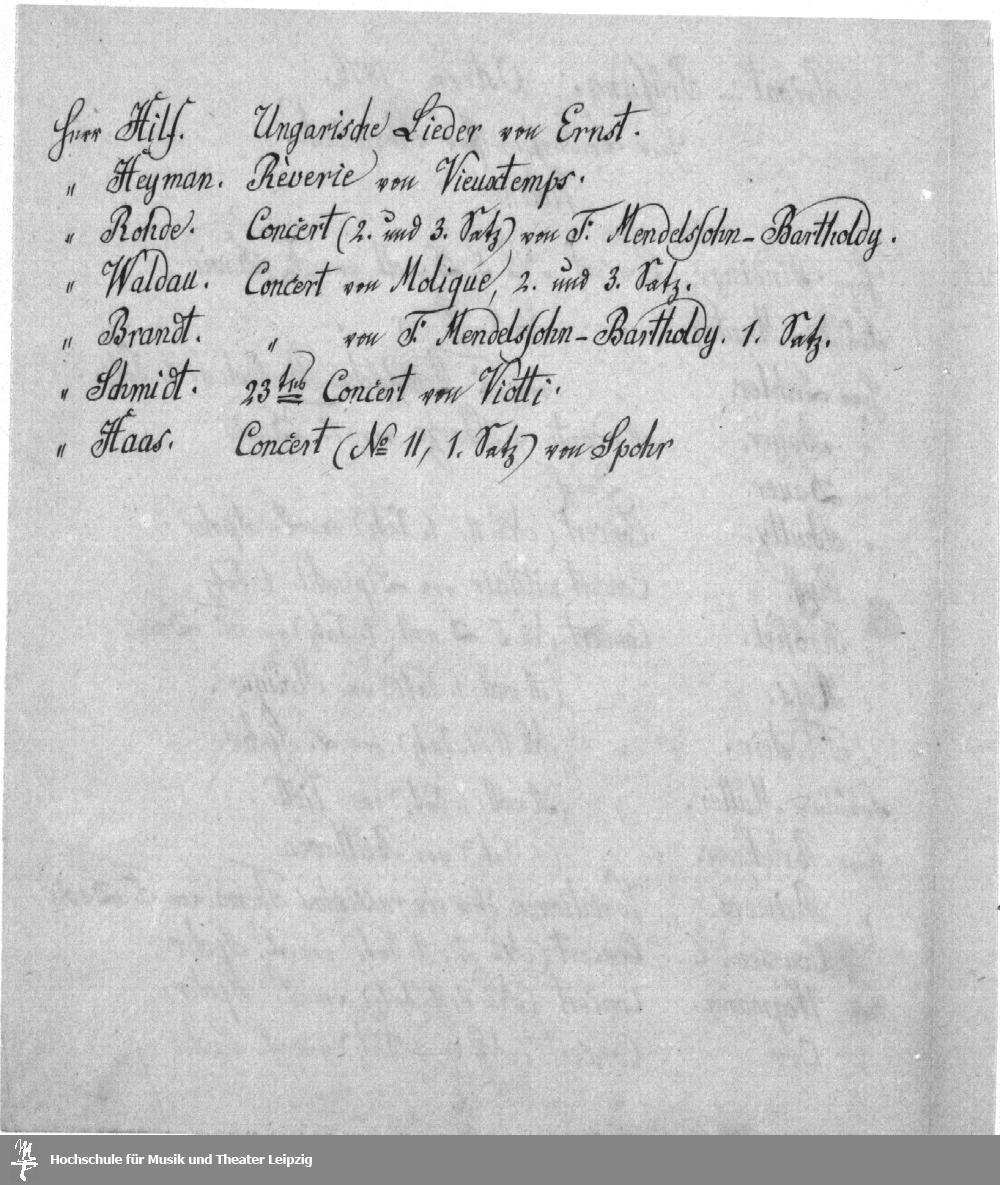 Herr Hilf. Ungarische Lieder von Ernst.
" Heyman. Rèverie von Vieuxtemps.
" Rohde. Concert (2. und 3. Satz) von F. Mendelssohn-Bartholdy.
" Waldau. Concert von Molique, 2. und 3. Satz.
" Brandt. " von F. Mendelssohn-Bartholdy. 1. Satz.
" Schmidt. 23tes Concert von Viotti.
" Haas. Concert (No 11, 1. Satz) von Spohr
Hochschule für Musik und Theater Leipzig